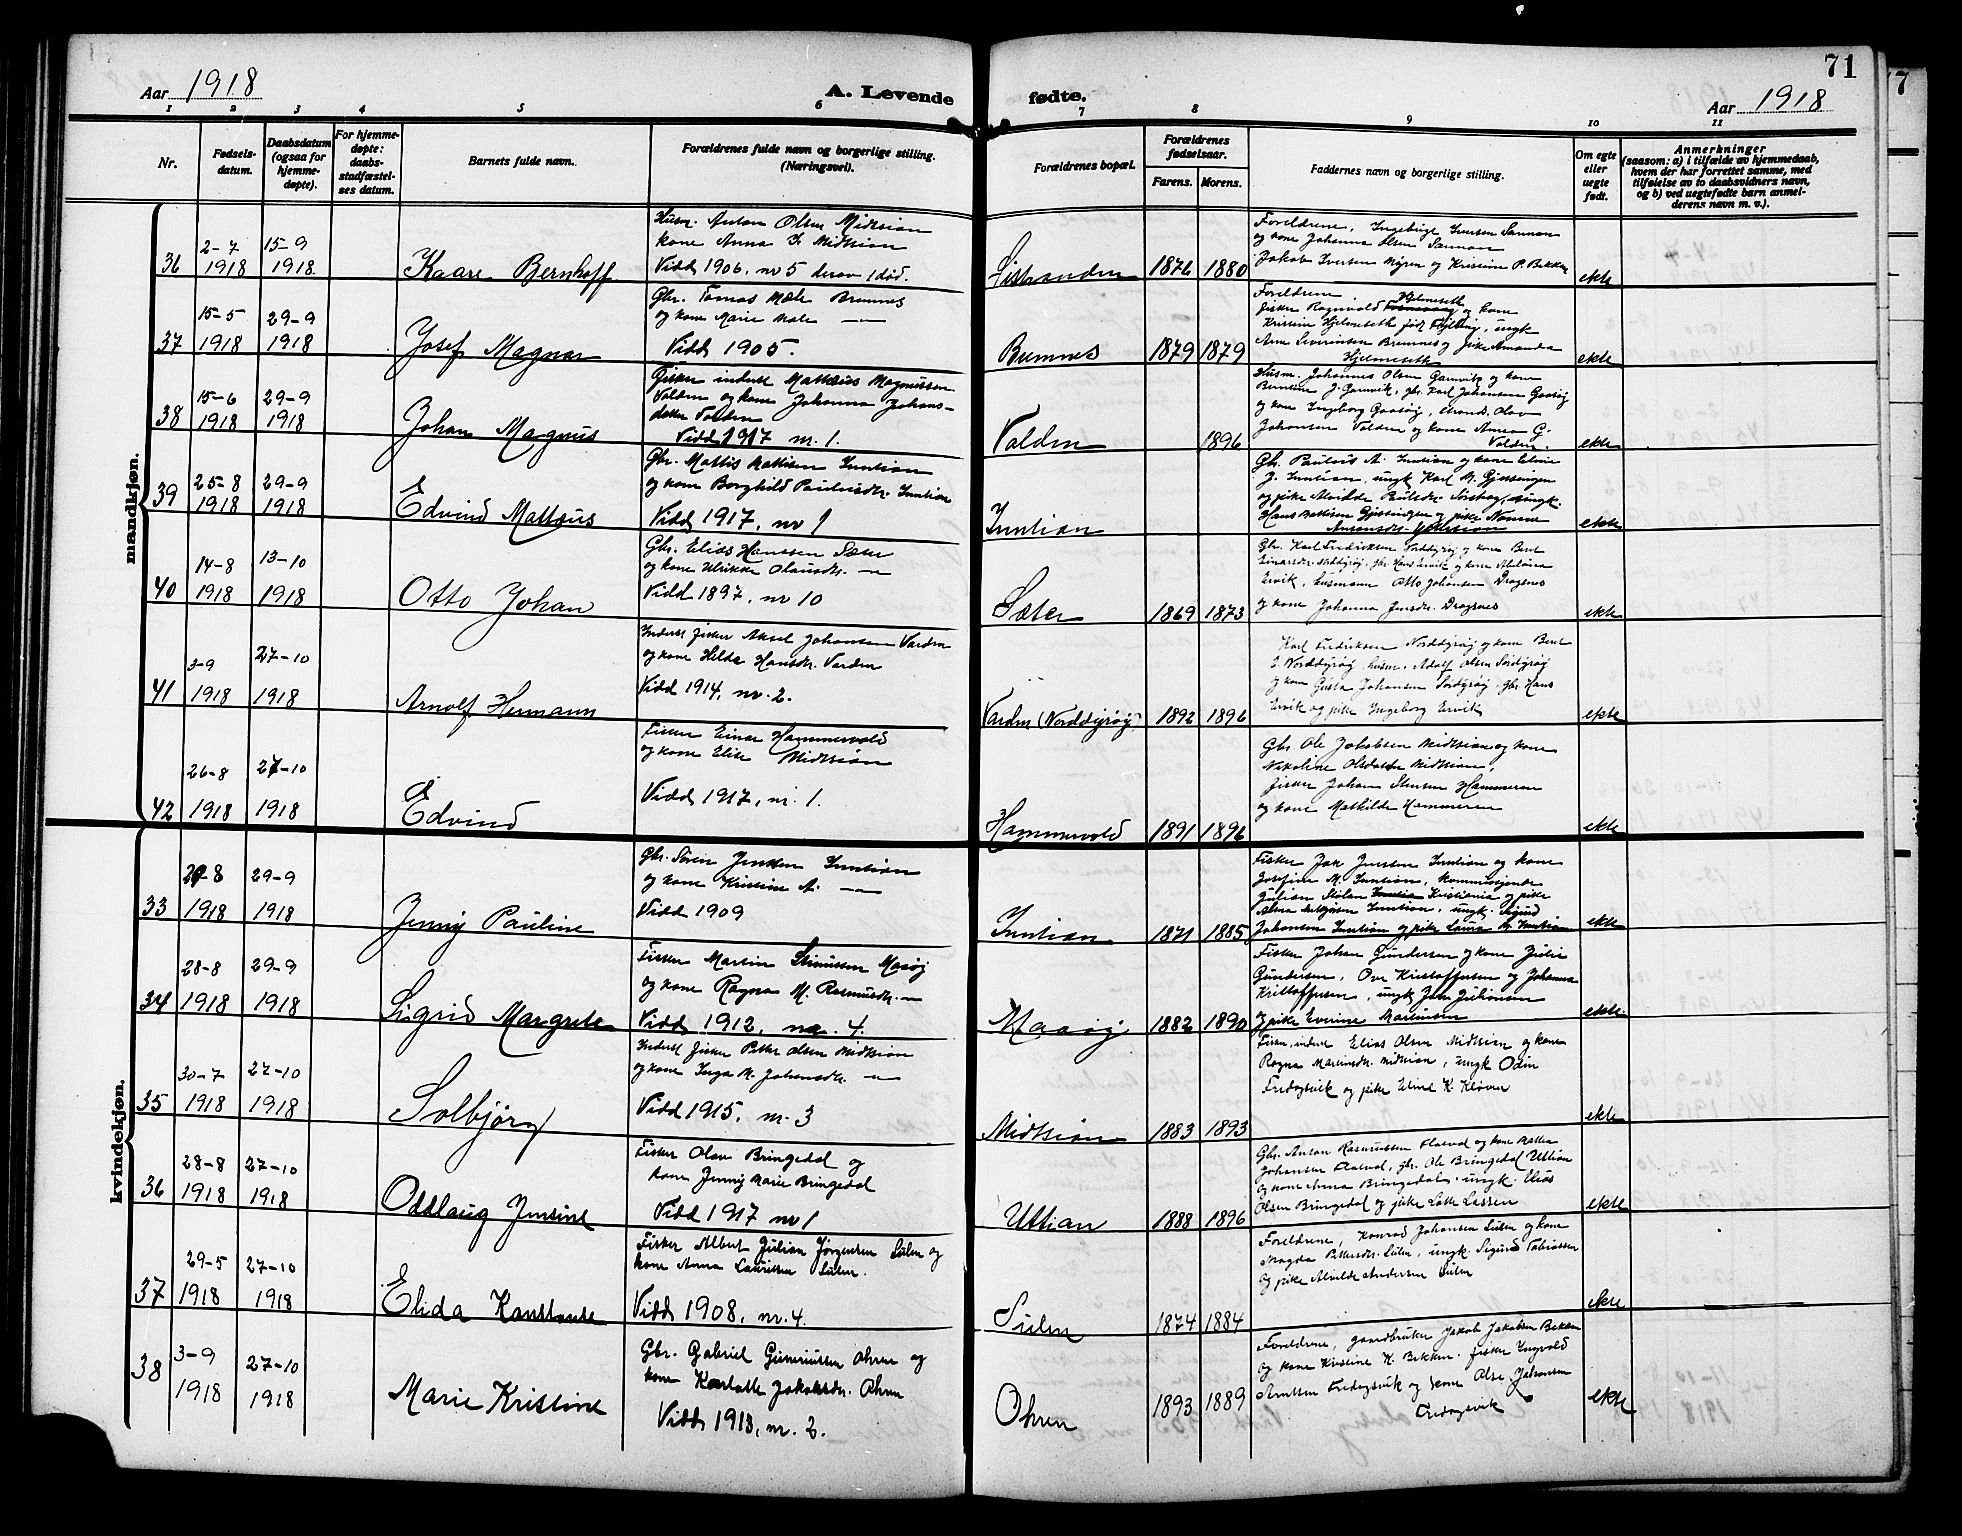 Aar 1918
A. Levende
fødte.
Aar 1918
71
1 2 3 4 5 6 7 8 9 10 11
Nr.
Fødsels-
datum.
Daabsdatum
(ogsaa for
hjemme-
døpte).
For hjemme-
døpte:
daabs-
stadfæstel-
ses datum.
Barnets fulde navn.
Forældrenes fulde navn og borgerlige stilling.
(Næringsvei).
Forældrenes bopæl.
Forældrenes
fødselsaar.
Farens. Morens.
Faddernes navn og borgerlige stilling.
Om egte
eller
uegte
født.
Anmerkninger
(saasom: a) i tilfælde av hjemmedaab,
hvem der har forrettet samme, med
tilføielse av to daabsvidners navn,
og b) ved uegtefødte barn anmel-
derens navn m. v.).
mandkjøn.
36
2-7
1918
15-9
1918
Kaare Bernhoff
Husm. Anton Olsen Midtsian
kone Anna Midtsian
Vidd 1906. nr 5 derav 1 død.
1876 1880
Foreldrene, Ingebrigt Iversen Sannan
og kone Johanna Olsen Sannan
Jakob Iversen Myren og Kristine P. Bekken
ekte
37
15-5
1918
29-9
1918
Josef Magnar
Gbr. Tomas Mæle Bremnes
og kone Marie Mæle —
Vidd 1905.
Bremnes
1879 1879
Foreldrene
fisker Ragnvald Hjelmeseth og kone
Kristine Hjelmeseth født, ungk
Arne Severinsen Bremnes og pike Amanda
Hjelmeseth
ekte
38
15-6
1918
29-9
1918
Johan Magnus
Fisker inderst Mattæus Magnussen
Valden og kone Johanna Johans-
datter Valden
Vidd 1917 nr. 1.
Valden
1896
Husm. Johannes Olsen Gamvik og kone
Berntine J. Gamvik, gbr. Karl Johansen Gaasøy
og kone Ingeborg Gaasøy, Olav
Johansen Valden og kone Anna G.
Valden.
ekte
39
25-8
1918
29-9
1918
Edvind Mattæus
Gbr. Mattis Mattisen Inntian
og kone Borghild Paulusdtr. Inntian
Vidd 1917. nr 1
Inntian
Gbr. Paulus A. Inntian og kone Eline
J. Inntian, ungk Karl M. Gjessingen
og pike Alvilde ungk.
Hans Mattisen Gjessingen og pike
ekte
40
14-8
1918
13-10
1918
Otto Johan
Gbr. Elias Hanssen Sæter
og kone Ulrikke Olausdtr. —
Vidd 1897. nr 10
Sæter
1869 1873
Gbr. Karl Fredriksen Norddyrøy og kone Beret
Einarsdtr. Norddyrøy, gbr. Hans Ervik og kone
Ervik, husmann Otto Johansen Dragsnes
og kone Johanna Jensdtr. Dragsnes
ekte
41
3-9
1918
27-10
1918
Arnolf Hermann
Inderst fisker Aksel Johansen Varden
og kone Hilda Hansdtr. Varden
Vidd 1914. nr. 2.
Varden (Norddyrøy)
1892 1896
Karl Fredriksen Norddyrøy og kone Beret
E. Norddyrøy, husm. Adolf Olsen Sørdyrøy
og kone Gusta Johansen Sørdyrøy, gbr. Hans
Ervik og pike Ingeborg Ervik
ekte
42
26-8
1918
27-10
1918
Edvind
Fisker Einar Hammervold
og kone Elise Midtsian
Vidd 1917, nr. 1.
Hammervold
1891 1896
Gbr. Ole Jakobsen Midtsian og kone
Nikoline Olsdatter Midtsian,
fisker Johan Stensen Hammeren
og kone Mathilde Hammeren
ekte
kvindekjøn.
33
1918
29-9
1918
Jenny Pauline
Gbr. Søren Jensen Inntian
og kone Kristine A. —
Vidd 1909
Inntian
1871 1885
Fisker Jak Jensen Inntian og kone
Josefine M. Inntian, kommissjonær
Julian Stolan Kristiania og pike
Alma Inntian, ungk. Sigurd
Johansen Inntian og pike Laura Inntian
ekte
34
28-8
1918
29-9
1918
Sigrid Margrete
Fisker Martin Simonsen Maasøy
og kone Ragna M. Rasmusdtr. —
Vidd 1912. nr. 4.
Maasøy
1882 1890
Fisker Johan Gundersen og kone Julie
Gundersen, Ove Kristoffersen og Johanna
Kristoffersen, ungk Julianson
og pike Everine Martinsen
ekte
35
30-7
1918
27-10
1918
Solbjørg
Inderst fisker Petter Olsen Midtsian
og kone Inga M. Johansdtr. —
Vidd 1915. nr. 3
Midtsian
1883 1893
Fisker, inderst Elias Olsen Midtsian og kone
Ragna Martinsdtr. Midtsian, ungk Odin
Fredagsvik og pike Eline K. Kløven
ekte
36
28-8
1918
27-10
1918
Oddlaug Jensine
Fisker Olav Bringedal og
kone Jenny Marie Bringedal
Vidd 1917 nr 1
Uttian
1888 1896
Gbr. Anton Rasmussen Flatval og kone
Johansen Flatval, gbr. Ole Bringedal Uttian
og kone Anna Bringedal, ungk.
Olsen Bringedal og pike Lotte Lassen
ekte
37
29-5
1918
27-10
1918
Elida Konstanse
Fisker Albert Julian Jørgensen Sulen og
kone Anna Lauritsen Sulen.
Vidd 1908. nr. 4.
Sulen
1874 1884
Foreldrene, Konrad Johansen Sulen og kone
Magda Pettersdtr. Sulen, ungk. Sigurd Tobiassen
og pike Alvilde Andersen Sulen
ekte
38
3-9
1918
27-10
1918
Marie Kristine
Gbr. Gabriel Gunerius­sen Ohren og
kone Karlotte Jakobsdtr. Ohren
Vidd 1913, nr. 2.
Ohren
1893 1889
Foreldrene, gaardbruker Jakob Jakobsen Bekken
og kone Kristine K. Bekken. fisker Ingvald
Arntsen Fredagsvik og kone Johansen
Fredagsvik
ekte